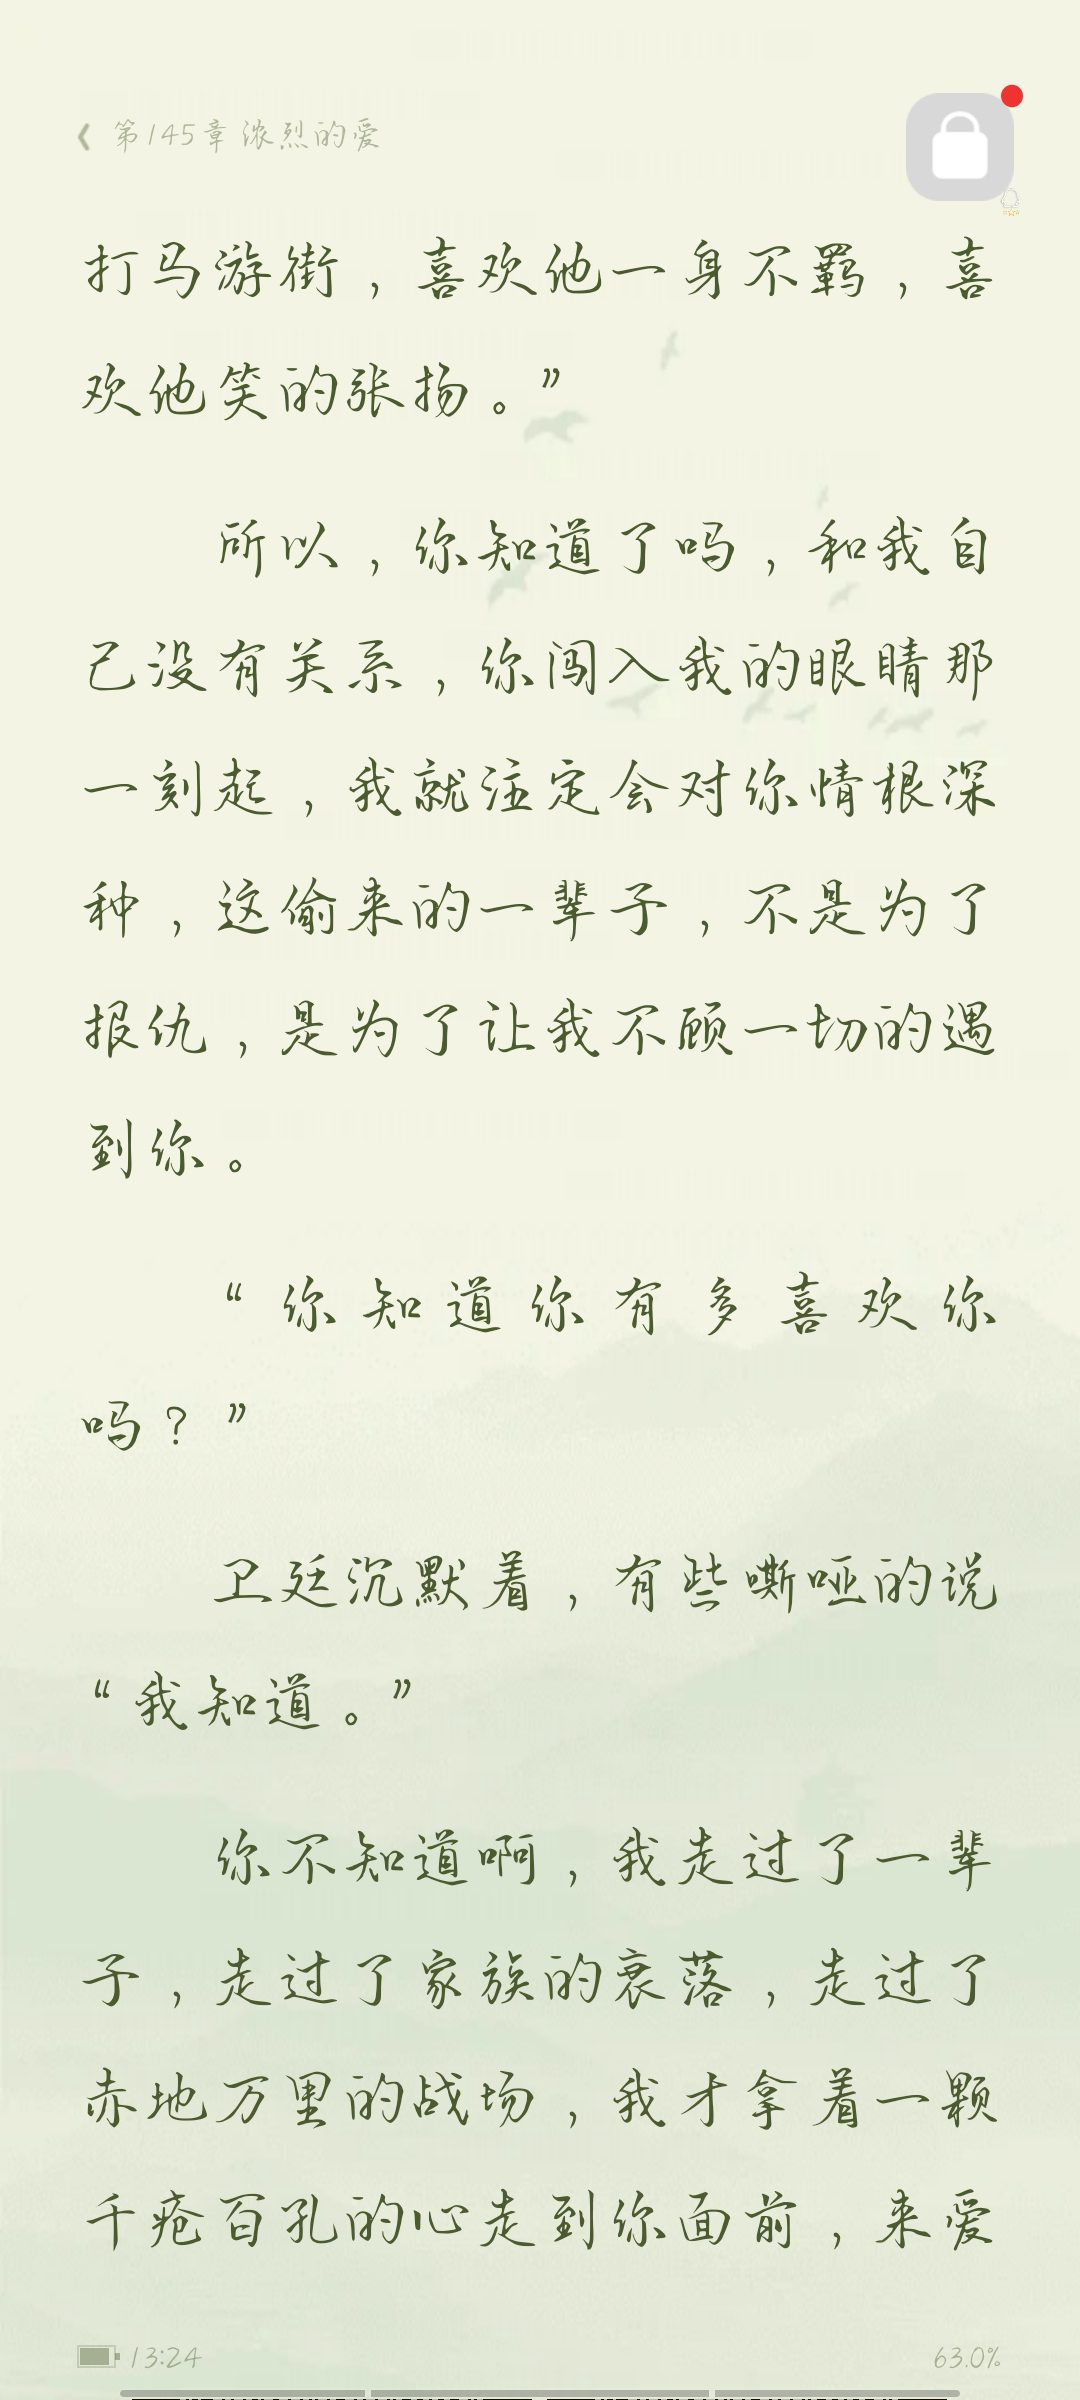 第145章 浓烈的爱
打马游街，喜欢他一身不羁，喜
欢他笑的张扬。”
所以，你知道了吗，和我自
己没有关系，你闯入我的眼睛那
一刻起，我就注定会对你情根深
种，这偷来的一辈子，不是为了
报仇，是为了让我不顾一切的遇
到你。
“你知道你有多喜欢你
吗？”
卫廷沉默着，有些嘶哑的说
“我知道。”
你不知道啊，我走过了一辈
子，走过了家族的衰落，走过了
赤地万里的战场，我才拿着一颗
千疮百孔的心走到你面前，来爱
13:24
63.0%